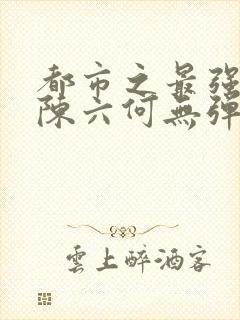 都市之最强
陳六何無弹
雲上醉酒客